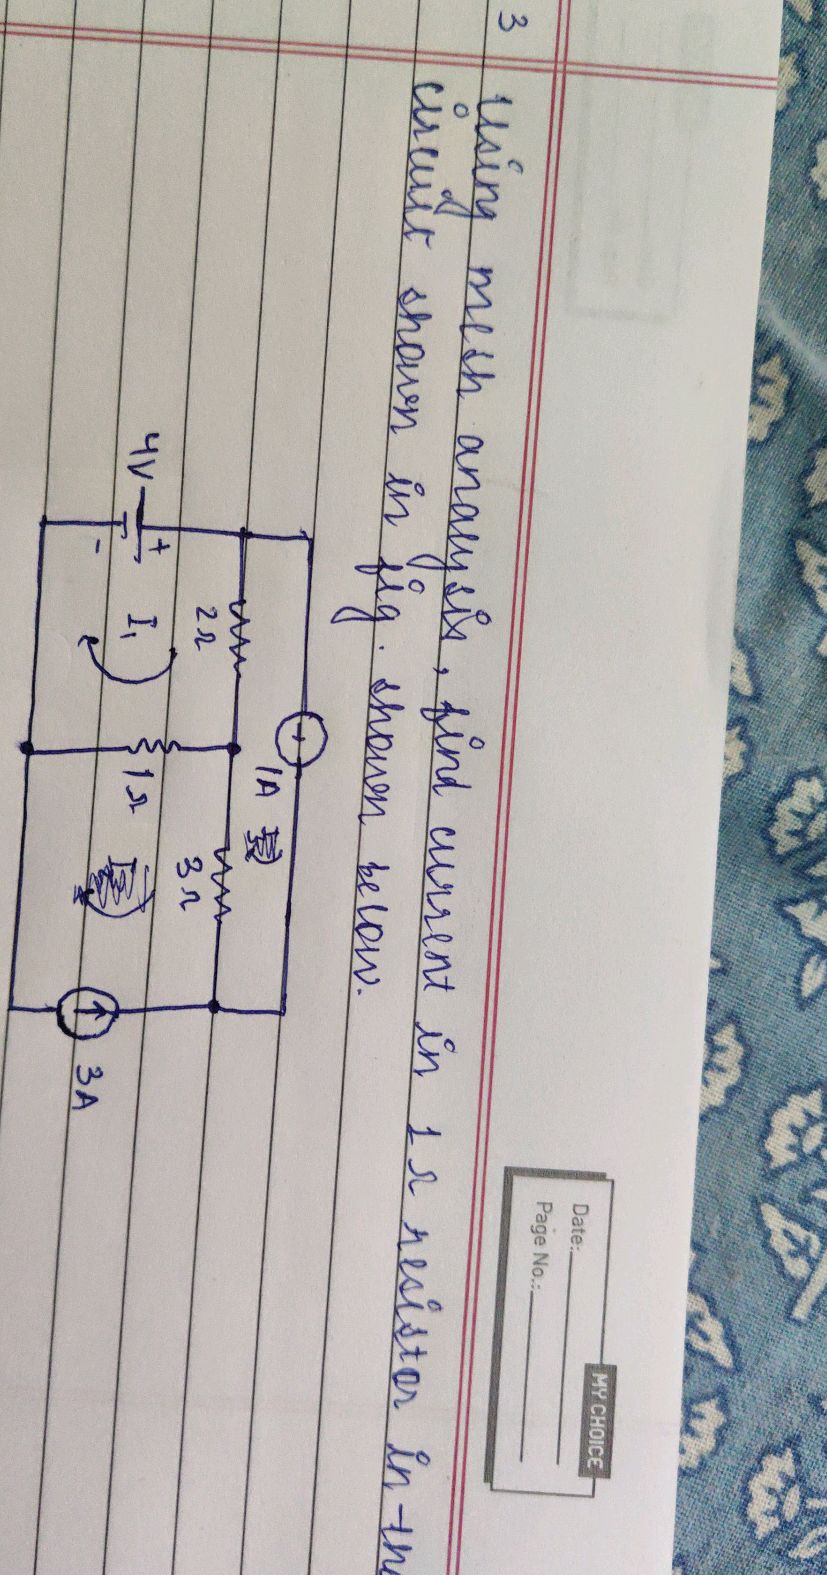 MY CHOICE
Date:
Page No.:
3 Using mesh analysis, find current in 1Ω resistor in the
circuit shown in fig. shown below.
1A
2Ω
3Ω
4V
+
-
I₁
1Ω
3A